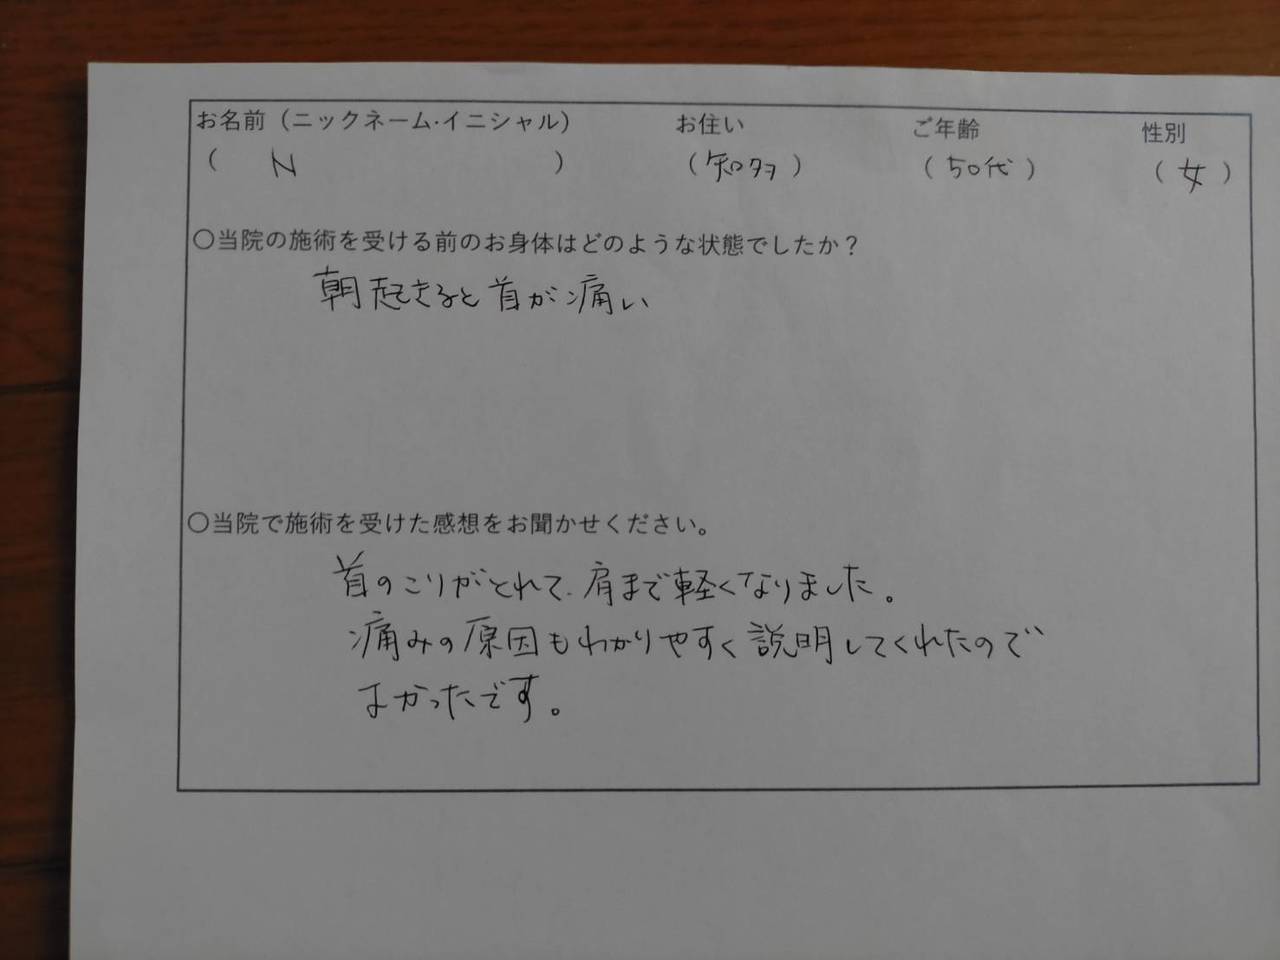 お名前（ニックネーム・イニシャル） お住い ご年齢 性別
（ N ） （知多） （50代） （女）
○当院の施術を受ける前のお身体はどのような状態でしたか？
朝起きると首が痛い
○当院で施術を受けた感想をお聞かせください。
首のこりがとれて、肩まで軽くなりました。
痛みの原因もわかりやすく説明してくれたので
よかったです。